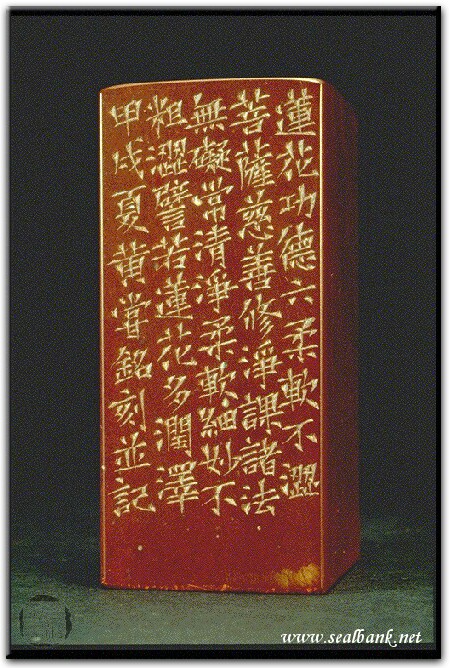 蓮花功德六柔軟不澀
菩薩慈善修淨課諸法
無礙常清淨柔軟細妙不
粗澀譬若蓮花多潤澤
甲戌夏黃嘗銘刻並記
www.sealbank.net